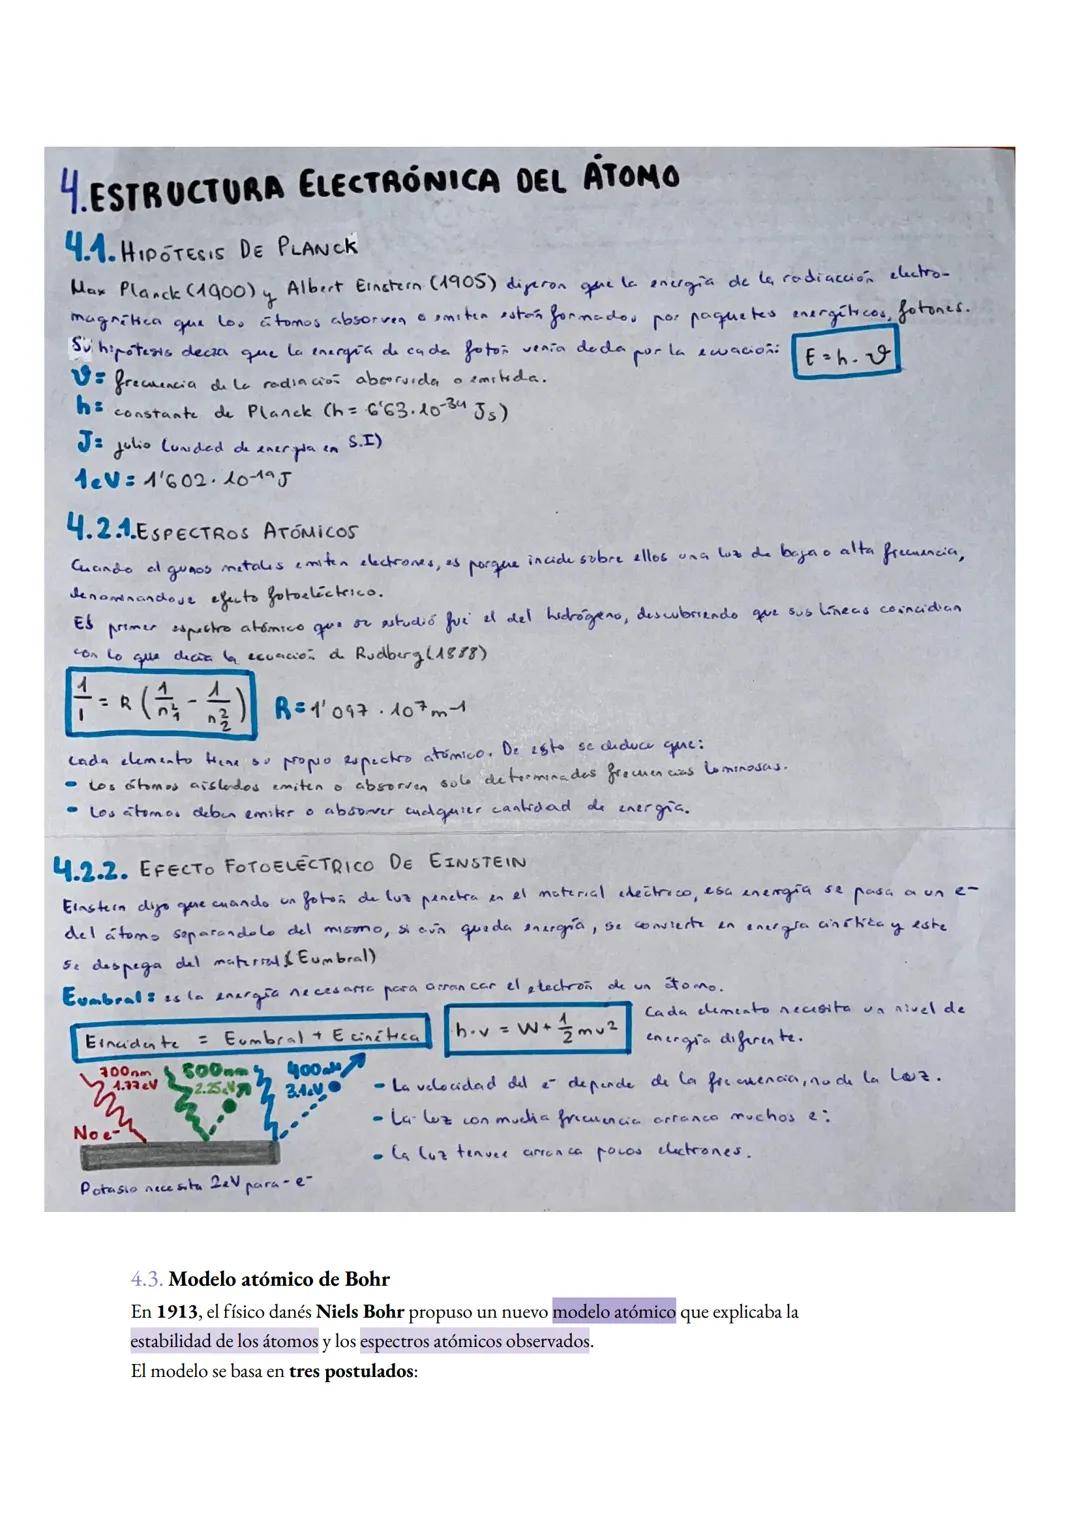 4.ESTRUCTURA ELECTRÓNICA DEL ÁTOMO
4.1. HIPÓTESIS DE PLANCK
Max Planck (1900) y Albert Einstein (1905) dijeron que la energía de la radiacción electro-
magnética que los átomos absorven o emiten están formados por paquetes energéticos, fotones.
Su hipótesis decía que la energía de cada fotón venía dada por la ecuación: E = h · ν
ν = frecuencia de la radiación absorvida o emitida.
h = constante de Planck (h = 6'63·10-34 Js)
J = julio (unidad de energía en S.I)
1eV = 1'602·10-19 J
4.2.1. ESPECTROS ATÓMICOS
Cuando algunos metales emiten electrones, es porque incide sobre ellos una luz de baja o alta frecuencia,
denominandose efecto fotoeléctrico.
El primer espectro atómico que se estudió fue el del hidrógeno, descubriendo que sus líneas coincidian
con lo que decía la ecuación de Rudberg (1888)
1/l = R (1/n²1 - 1/n²2) R = 1'097·10⁷m-1
Cada elemento tiene su propio espectro atómico. De esto se deduce que:
- Los átomos aislados emiten o absorven solo determinadas frecuencias luminosas.
- Los átomos deben emitir o absorver cualquier cantidad de energía.
4.2.2. EFECTO FOTOELÉCTRICO DE EINSTEIN
Einstein dijo que cuando un fotón de luz penetra en el material eléctrico, esa energía se pasa a un e-
del átomo separandolo del mismo, si aún queda energía, se convierte en energía cinética y este
se despega del material (Eumbral)
Eumbral: es la energía necesaria para arrancar el electrón de un átomo.
Eincidente = Eumbral + Ecinética h·v = W + 1/2 mv² Cada elemento necesita un nivel de
energía diferente.
700nm 500nm 400nm
1.77eV 2.25eV 3.1eV
No e-
- La velocidad del e- depende de la frecuencia, no de la luz.
- La luz con mucha frecuencia arranca muchos e-
- La luz tenue arranca pocos electrones.
Potasio necesita 2eV para - e-
4.3. Modelo atómico de Bohr
En 1913, el físico danés Niels Bohr propuso un nuevo modelo atómico que explicaba la
estabilidad de los átomos y los espectros atómicos observados.
El modelo se basa en tres postulados: